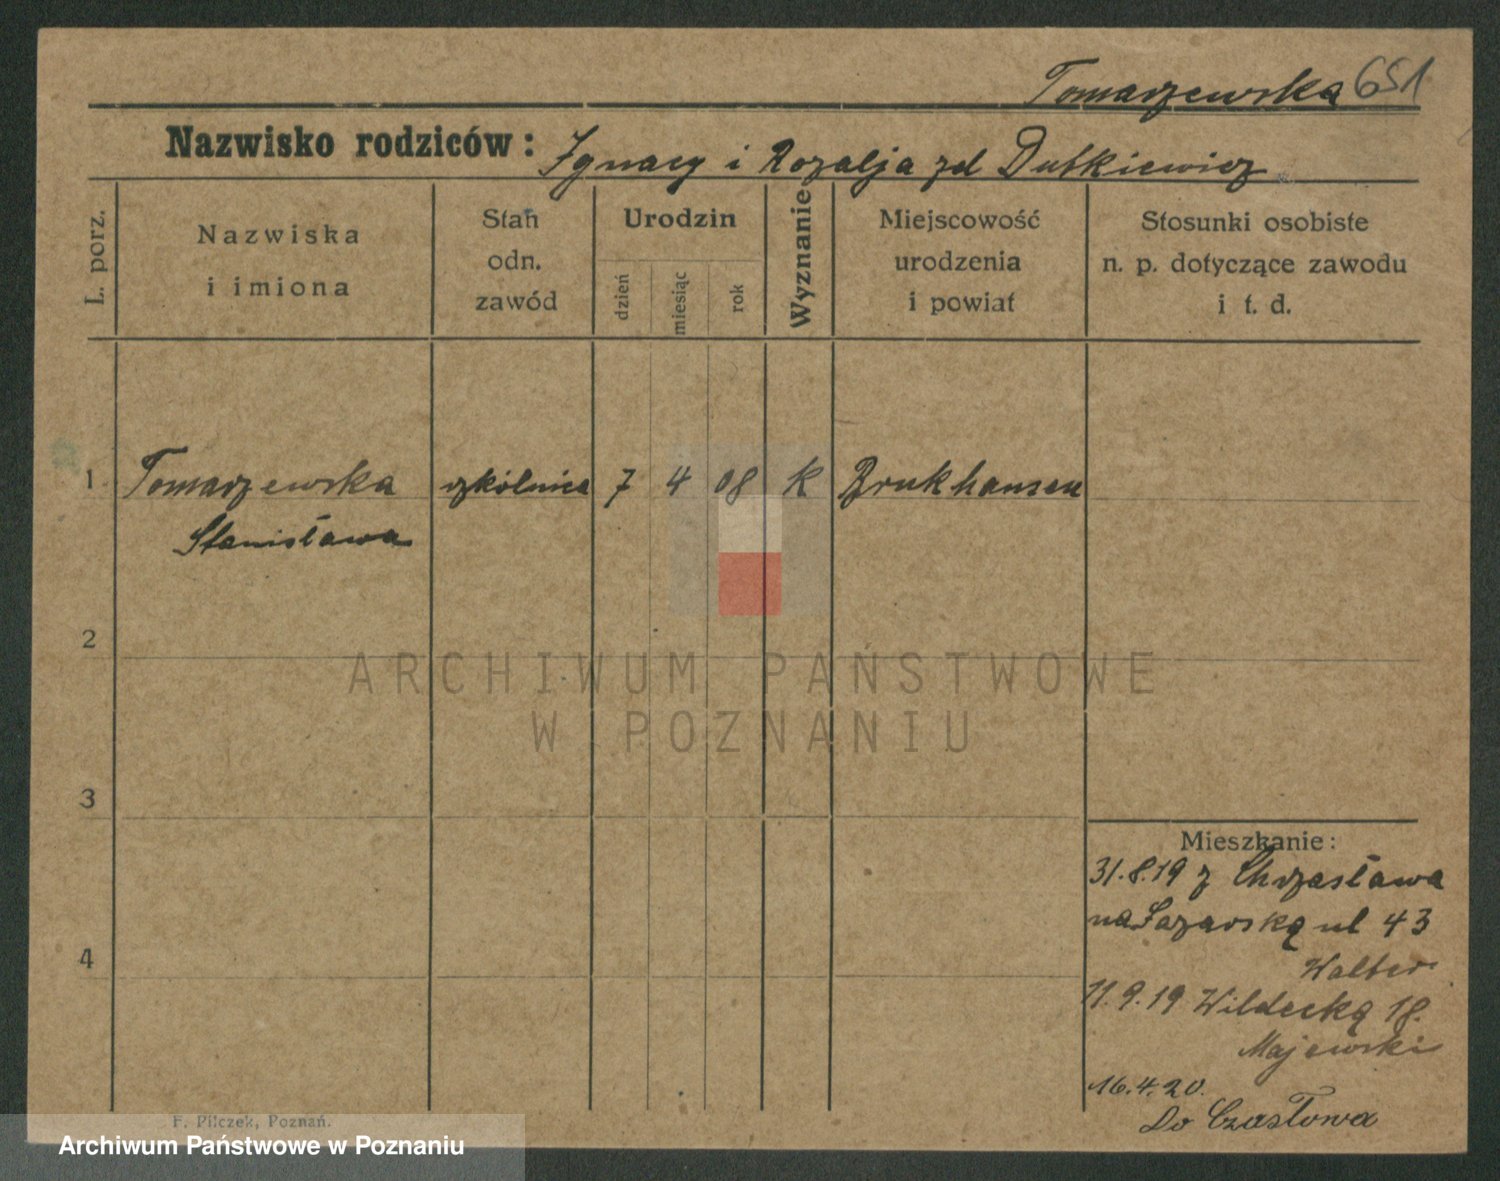 Tomaszewska 651
Nazwisko rodziców: Ignacy i Rozalja zd Dutkiewicz
L. porz.
Nazwiska
i imiona
Stan
odn.
zawód
Urodzin
dzień
miesiąc
rok
Wyznanie
Miejscowość
urodzenia
i powiat
Stosunki osobiste
n. p. dotyczące zawodu
i t. d.
1 Tomaszewska szkolnica 7 4 08 K Brukhausen
Stanisława
2
ARCHIWUM PAŃSTWOWE
W POZNANIU
3
4
Mieszkanie:
31.8.19 z Chrząstawa
na Łazarską ul 43
Walter
11.9.19 Wildecką 18.
Majewski
16.4.20.
Do Czastowa
F. Pilczek, Poznań.
Archiwum Państwowe w Poznaniu